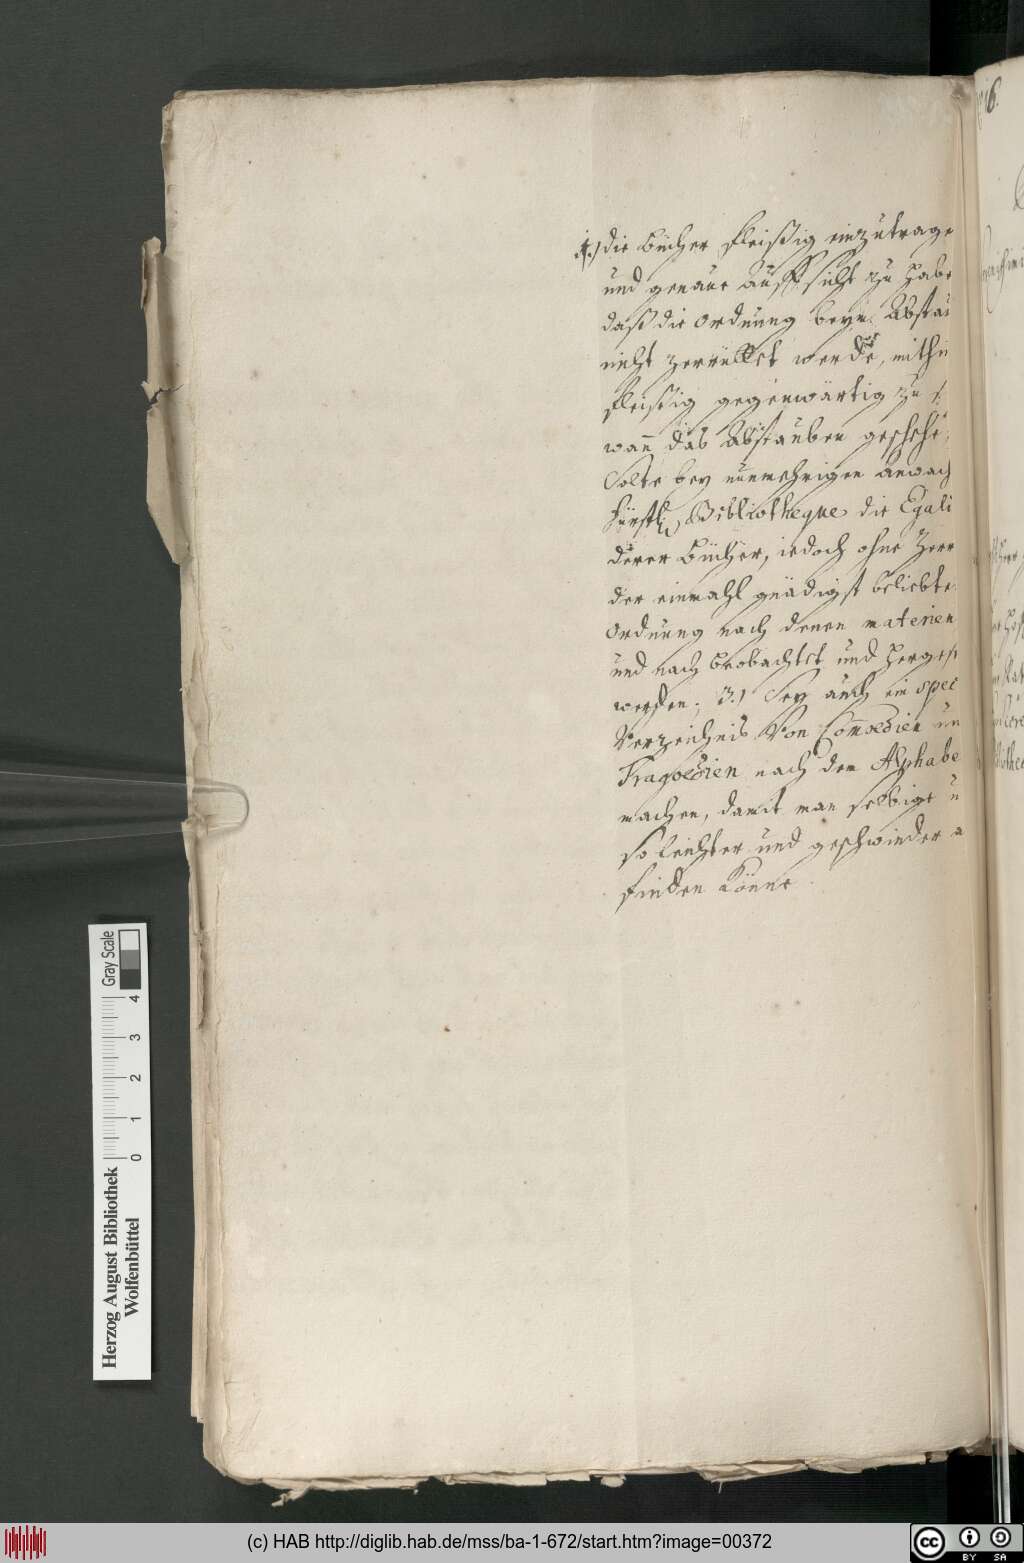 1.) die Bücher fleißig einzutrage
und genaue auffsicht zu habe
daß die ordnung beym Abstau
nicht zerrüttet werde, mithin
fleißig gegenwärtig zu
wan̅ das Abstauben geschehe,
Solte bey nunmehrigen anwach
fürstl. Bibliotheque die Egali
derer Bücher, iedoch ohne Zerr
der einmahl gnädigst beliebte
ordnung nach denen materien
und nach beobachtet und herges
werden. 3.) Sey auch ein spec
Verzeichnis Von Com̅oedien un
Tragoedien nach dem Alphabe
machen, damit man selbige u
so leichter und geschwinder a
finden könne.
16.
Herzog August Bibliothek
Wolfenbüttel
0 1 2 3 4
Gray Scale
(c) HAB http://diglib.hab.de/mss/ba-1-672/start.htm?image=00372
cc BY SA